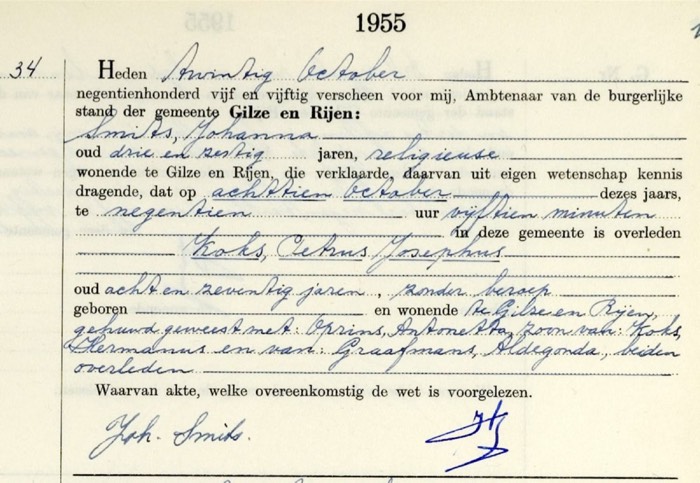 1955
34
Heden twintig October
negentienhonderd vijf en vijftig verscheen voor mij, Ambtenaar van de burgerlijke
stand der gemeente Gilze en Rijen:
Smits, Johanna
oud drie en zestig jaren, religieuse
wonende te Gilze en Rijen, die verklaarde, daarvan uit eigen wetenschap kennis
dragende, dat op achttien October dezes jaars,
te negentien uur vijftien minuten
in deze gemeente is overleden
Koks, Petrus Josephus
oud acht en zeventig jaren, zonder beroep
geboren en wonende te Gilze en Rijen,
gehuwd geweest met: Oprins, Antonetta, zoon van: Koks,
Hermanus en van: Graafmans, Aldegonda, beiden
overleden
Waarvan akte, welke overeenkomstig de wet is voorgelezen.
Joh. Smits.